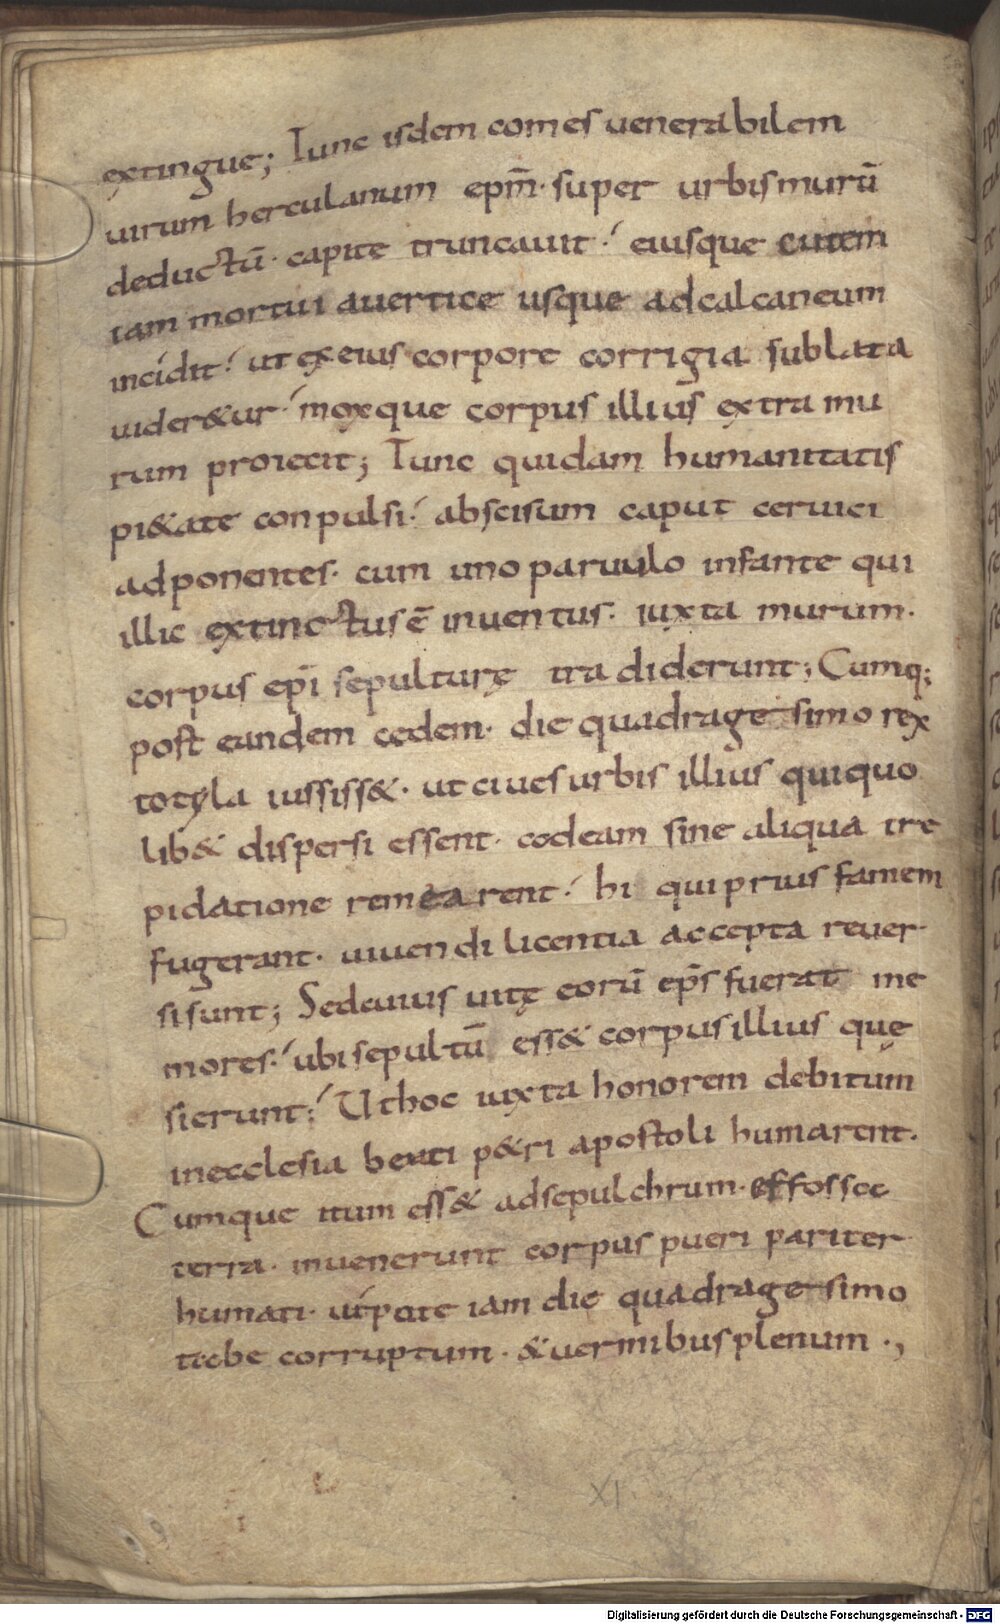 extingue; Tunc isdem comes uenerabilem
uirum herculanum ep̄m· super urbis murū
deductū· capite truncauit·́ eiusque cutem
iam mortui auertice usque adcalcaneum
incidit·́ ut exeius corpore corrigia sublata
uider&ur·́ moxque corpus illius extra mu
rum proiecit; Tunc quidam humanitatis
pi&ate conpulsi·́ abscisum caput ceruici
adponentes· cum uno paruulo infante qui
illic extinctus ē inuentus· iuxta murum·
corpus ep̄i sepulturę tradiderunt; Cumq;
post eandem cedem· die quadragesimo rex
totyla iussiss&· ut ciues urbis illius quiquo
lib& dispersi essent· eodeam sine aliqua tre
pidatione remearent·́ hi qui prius famem
fugerant· uiuendi licentia accepta reuer
si sunt; Sedcuius uitę eorū ep̄s fuerat me
mores·́ ubi sepultū ess& corpus illius quę
sierunt·́ Ut hoc iuxta honorem debitum
inecclesia beati p&ri apostoli humarent·
Cumque itum ess& adsepulchrum· effossee
terra· inuenerunt corpus pueri pariter
humati· utpote iam die quadragesimo
teebe corruptum· &uermibus plenum·,
XI
Digitalisierung gefördert durch die Deutsche Forschungsgemeinschaft - DFG